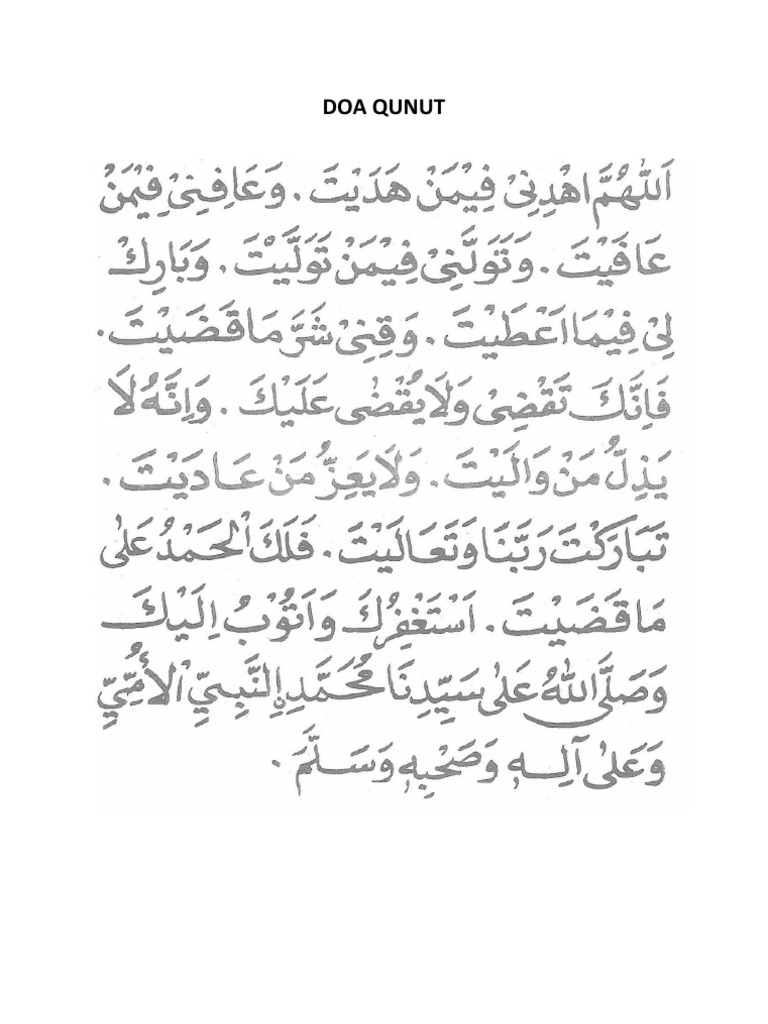 DOA QUNUT
اَللّٰهُمَّ اهْدِنِيْ فِيْمَنْ هَدَيْتَ. وَعَافِنِيْ فِيْمَنْ
عَافَيْتَ. وَتَوَلَّنِيْ فِيْمَنْ تَوَلَّيْتَ. وَبَارِكْ
لِيْ فِيْمَا اَعْطَيْتَ. وَقِنِيْ شَرَّ مَا قَضَيْتَ.
فَاِنَّكَ تَقْضِيْ وَلَا يُقْضٰى عَلَيْكَ. وَاِنَّهُ لَا
يَذِلُّ مَنْ وَالَيْتَ. وَلَا يَعِزُّ مَنْ عَادَيْتَ.
تَبَارَكْتَ رَبَّنَا وَتَعَالَيْتَ. فَلَكَ الْحَمْدُ عَلٰى
مَا قَضَيْتَ. اَسْتَغْفِرُكَ وَاَتُوْبُ اِلَيْكَ
وَصَلَّى اللّٰهُ عَلٰى سَيِّدِنَا مُحَمَّدِنِ النَّبِيِّ الْأُمِّيِّ
وَعَلٰى آلِهٖ وَصَحْبِهٖ وَسَلَّمَ.